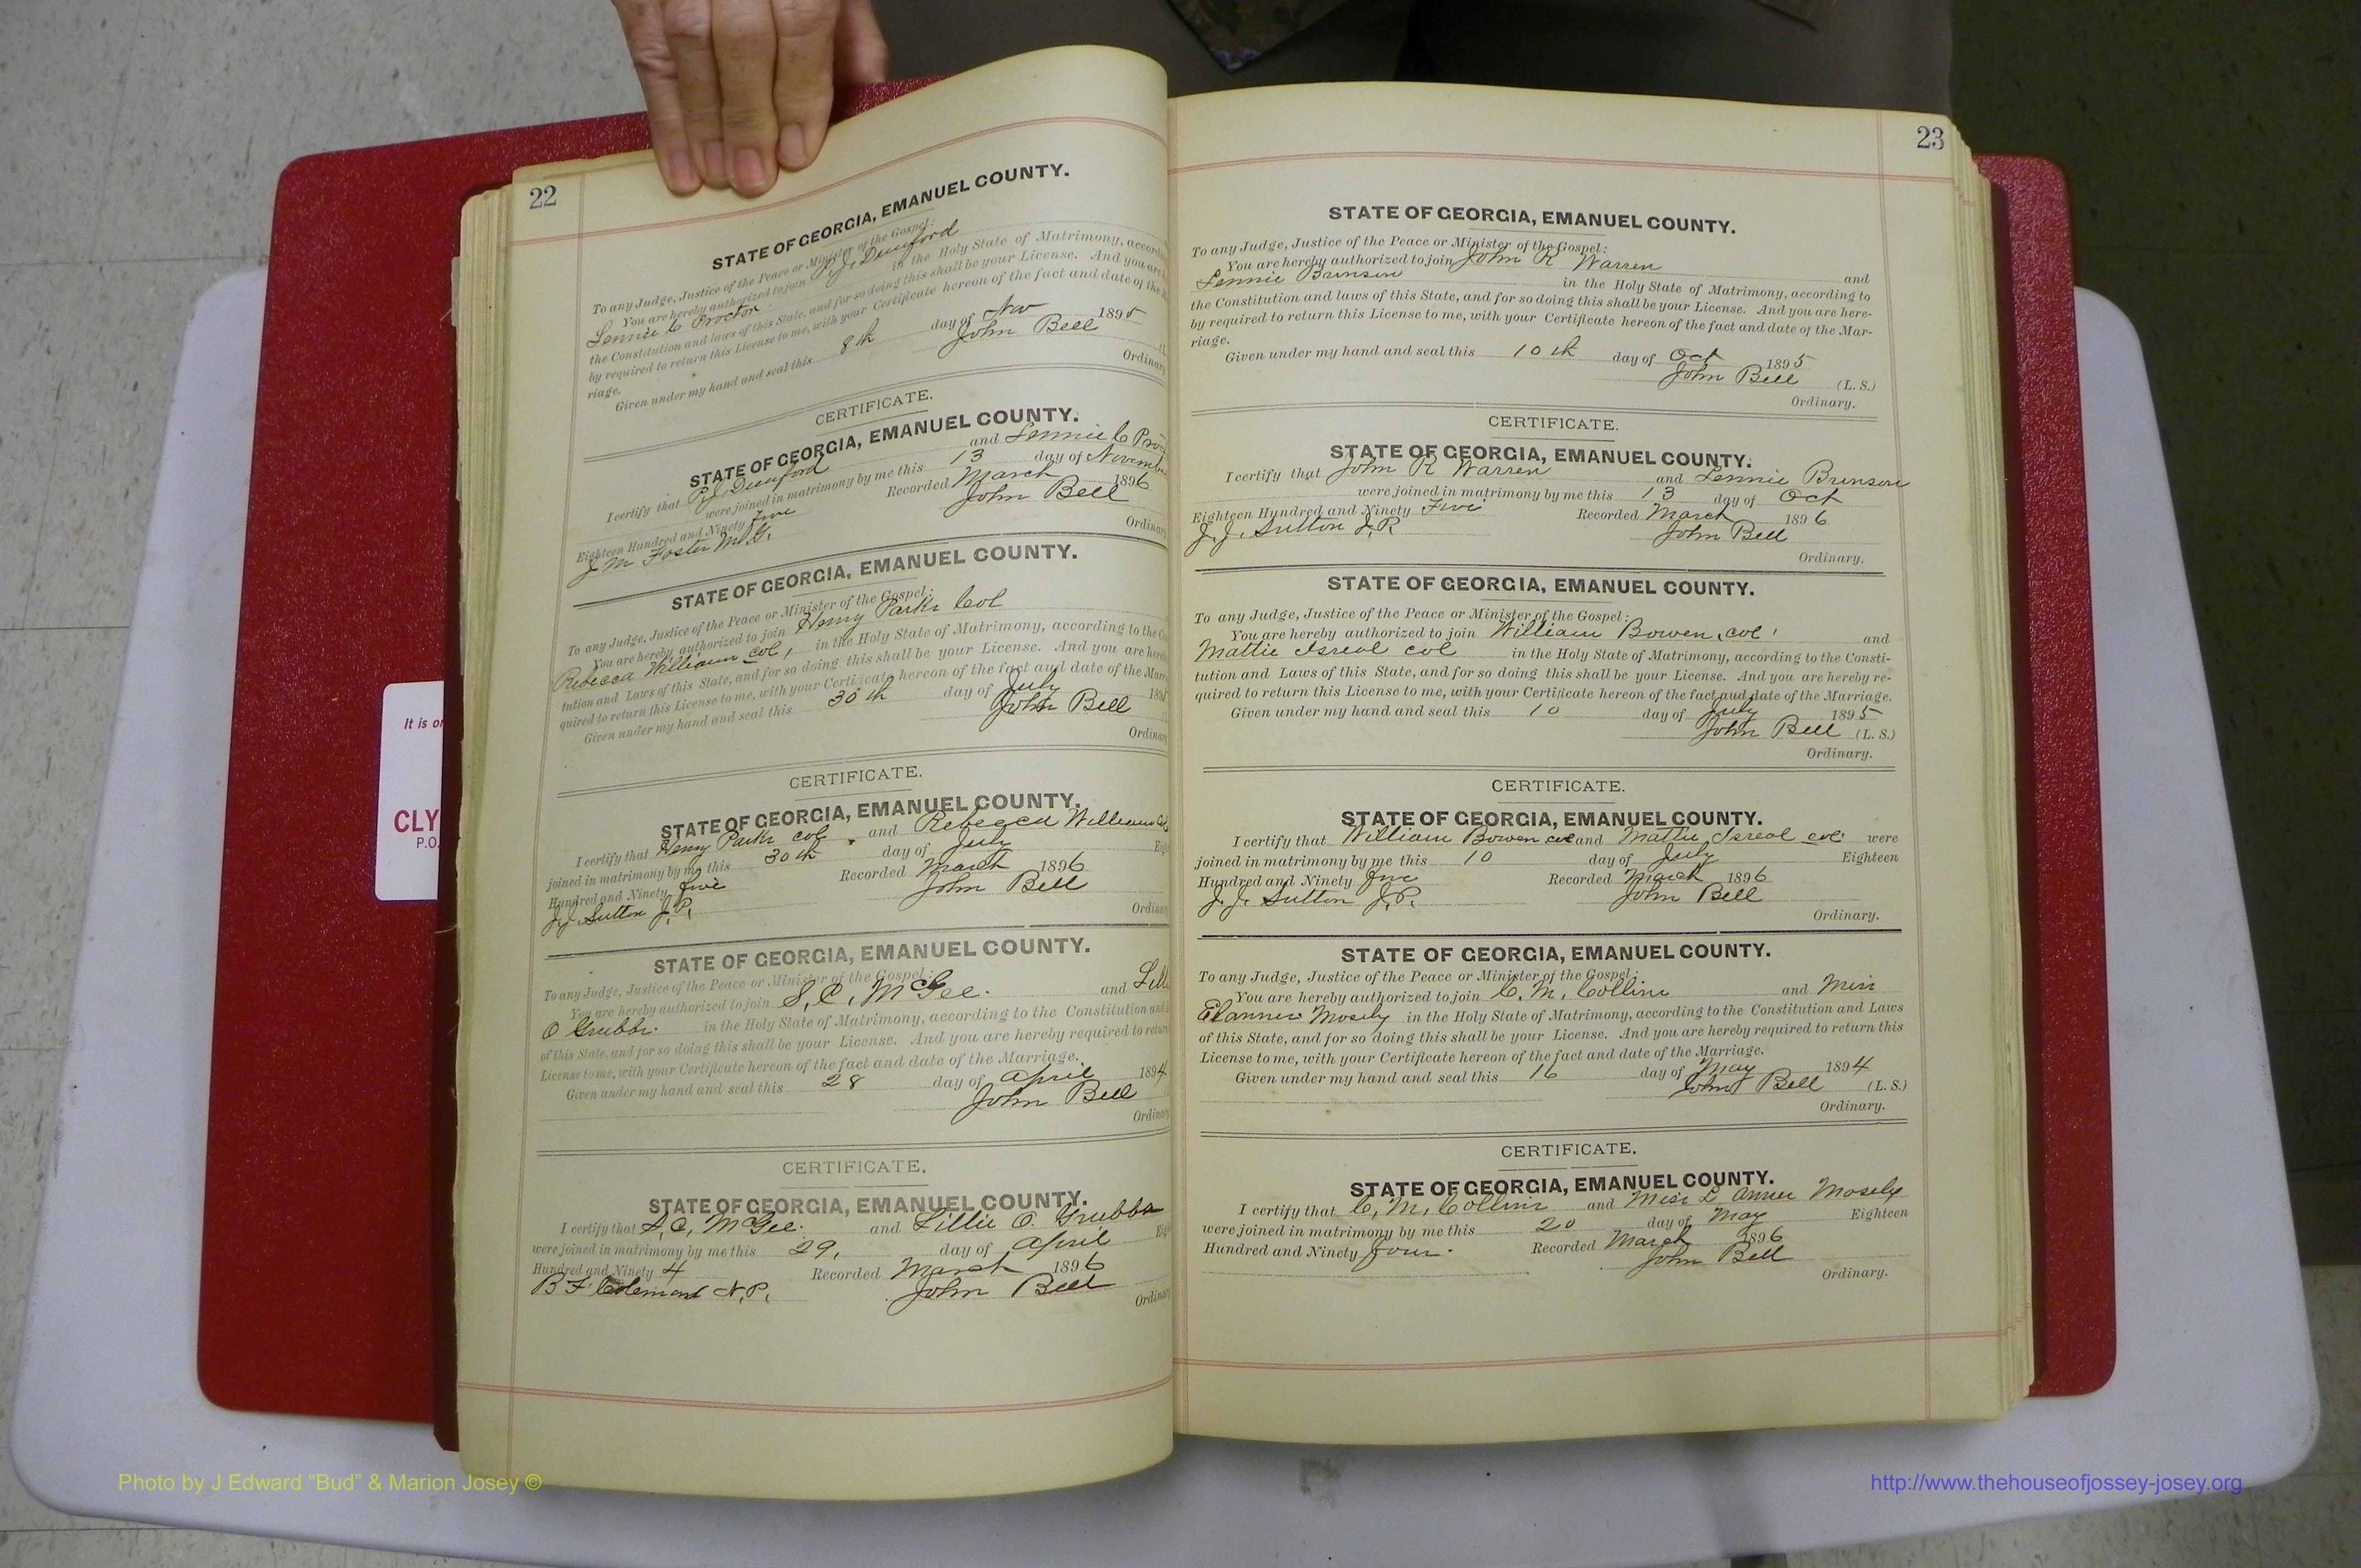 22
STATE OF GEORGIA, EMANUEL COUNTY.
To any Judge, Justice of the Peace or Minister of the Gospel:
You are hereby authorized to join P. J. Dunford
Lennie C Proctor in the Holy State of Matrimony, accordi
the Constitution and laws of this State, and for so doing this shall be your License. And you are
by required to return this License to me, with your Certificate hereon of the fact and date of the
riage.
Given under my hand and seal this 8th day of Nov 1895
John Bell
Ordinary
CERTIFICATE.
STATE OF GEORGIA, EMANUEL COUNTY.
I certify that P. J. Dunford and Lennie C Pro
were joined in matrimony by me this 13 day of Novembe
Eighteen Hundred and Ninety five Recorded March 1896
J M Foster M.G. John Bell
Ordinary
STATE OF GEORGIA, EMANUEL COUNTY.
To any Judge, Justice of the Peace or Minister of the Gospel:
You are hereby authorized to join Henry Parks Col
Rebecca Williams col, in the Holy State of Matrimony, according to the Co
tution and Laws of this State, and for so doing this shall be your License. And you are here
quired to return this License to me, with your Certificate hereon of the fact and date of the Mar
Given under my hand and seal this 30th day of July 189
John Bell
Ordinar
CERTIFICATE.
STATE OF GEORGIA, EMANUEL COUNTY.
I certify that Henry Parks col. and Rebecca Williams Col
joined in matrimony by me this 30th day of July Eig
Hundred and Ninety five Recorded March 1896
J. J. Sutton J.P. John Bell
Ordinar
STATE OF GEORGIA, EMANUEL COUNTY.
To any Judge, Justice of the Peace or Minister of the Gospel:
You are hereby authorized to join S. C. McGee. and Lill
O Grubbs. in the Holy State of Matrimony, according to the Constitution and
of this State, and for so doing this shall be your License. And you are hereby required to return
License to me, with your Certificate hereon of the fact and date of the Marriage.
Given under my hand and seal this 28 day of April 1894
John Bell
Ordinar
CERTIFICATE.
STATE OF GEORGIA, EMANUEL COUNTY.
I certify that S. C. McGee. and Lillie O. Grubbs
were joined in matrimony by me this 29, day of April Eig
Hundred and Ninety 4 Recorded March 1896
B F Coleman N.P. John Bell
Ordinar
23
STATE OF GEORGIA, EMANUEL COUNTY.
To any Judge, Justice of the Peace or Minister of the Gospel:
You are hereby authorized to join John R Warren and
Lennie Brinson in the Holy State of Matrimony, according to
the Constitution and laws of this State, and for so doing this shall be your License. And you are here-
by required to return this License to me, with your Certificate hereon of the fact and date of the Mar-
riage.
Given under my hand and seal this 10th day of Oct 1895
John Bell (L. S.)
Ordinary.
CERTIFICATE.
STATE OF GEORGIA, EMANUEL COUNTY.
I certify that John R Warren and Lennie Brinson
were joined in matrimony by me this 13 day of Oct
Eighteen Hundred and Ninety Five Recorded March 1896
J. J. Sutton J.P. John Bell
Ordinary.
STATE OF GEORGIA, EMANUEL COUNTY.
To any Judge, Justice of the Peace or Minister of the Gospel:
You are hereby authorized to join William Bowen, col. and
Mattie Isreal col in the Holy State of Matrimony, according to the Consti-
tution and Laws of this State, and for so doing this shall be your License. And you are hereby re-
quired to return this License to me, with your Certificate hereon of the fact and date of the Marriage.
Given under my hand and seal this 10 day of July 1895
John Bell (L. S.)
Ordinary.
CERTIFICATE.
STATE OF GEORGIA, EMANUEL COUNTY.
I certify that William Bowen col and Mattie Isreal col were
joined in matrimony by me this 10 day of July Eighteen
Hundred and Ninety five Recorded March 1896
J. J. Sutton J.P. John Bell
Ordinary.
STATE OF GEORGIA, EMANUEL COUNTY.
To any Judge, Justice of the Peace or Minister of the Gospel:
You are hereby authorized to join C. M. Collins and Miss
Elanner Mosely in the Holy State of Matrimony, according to the Constitution and Laws
of this State, and for so doing this shall be your License. And you are hereby required to return this
License to me, with your Certificate hereon of the fact and date of the Marriage.
Given under my hand and seal this 16 day of May 1894
John Bell (L. S.)
Ordinary.
CERTIFICATE.
STATE OF GEORGIA, EMANUEL COUNTY.
I certify that C. M. Collins and Miss L Anner Mosely
were joined in matrimony by me this 20 day of May Eighteen
Hundred and Ninety four. Recorded March 1896
John Bell
Ordinary.
It is o
CLY
P.O.
Photo by J Edward “Bud” & Marion Josey ©
http://www.thehouseofjossey-josey.org